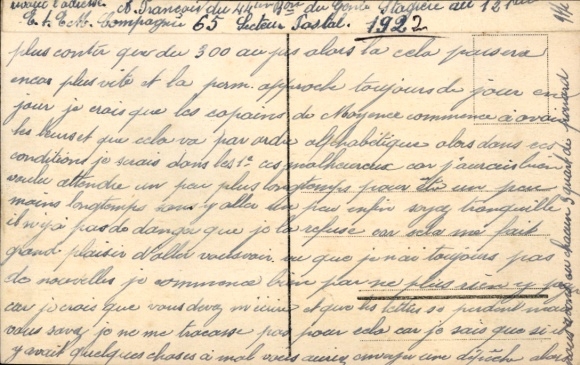 voici l'adresse. A. François du 44ème Bon du Génie Stagière au 12ème
E. I. E. M. Compagnie 65 Secteur Postal. 1922
plus contër que du 300 au jus alors la cela passera
encor plus vite et la perm. approche toujours de jour en
jour je crois que les copains de Mayence commence à avoir
les leurs et que cela va par ordre alphabétique alors dans ces
conditions je serais dans les 1er ces malheureux car j'aurais bien
voulu attendre un peu plus longtemps pour être un peu
moins longtemps sans y aller un peu enfin soyez tranquille
il n'y a pas de danger que je la refuse car cela me fait
grand plaisir d'aller vous voir. vu que je n'ai toujours pas
de nouvelles je commence bien par ne plus rien y
car je crois que vous devez m'écrire et que les lettres se perdent mais
vous savez je ne me tracasse pas pour cela car je sais que si il
y avait quelques choses à mal vous auriez envoyer une dépêche alors